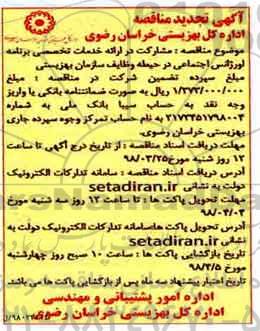 آگهی تجدید مناقصه
اداره کل بهزیستی خراسان رضوی
موضوع مناقصه : مشارکت در ارائه خدمات تخصصی برنامه
اورژانس اجتماعی در حیطه وظایف سازمان بهزیستی
مبلغ سپرده تضمین شرکت در مناقصه : مبلغ
۱/۳۷۳/۰۰۰/۰۰۰ ریال به صورت ضمانتنامه بانکی یا واریز
وجه نقد به حساب سیبا بانک ملی به شماره
۲۱۷۳۴۵۱۷۹۸۰۰۴ به نام حساب تمرکز وجوه سپرده جاری
بهزیستی خراسان رضوی.
مهلت دریافت اسناد مناقصه : از تاریخ درج آگهی تا ساعت
۱۲ روز شنبه مورخ ۹۸/۰۳/۲۵
آدرس دریافت اسناد مناقصه : سامانه تدارکات الکترونیک
دولت به نشانی setadiran.ir
مهلت تحویل پاکت ها : تا ساعت ۱۲ روز سه شنبه مورخ
۹۸/۰۴/۰۴
آدرس تحویل پاکت ها:سامانه تدارکات الکترونیک دولت به
نشانی setadiran.ir
تاریخ بازگشایی پاکت ها : ساعت ۱۰ صبح روز چهارشنبه
مورخ ۹۸/۴/۵
تاریخ اعتبار پیشنهاد سه ماه پس از بازگشایی پاکت ها می باشد.
اداره امور پشتیبانی و مهندسی
اداره کل بهزیستی خراسان رضوی